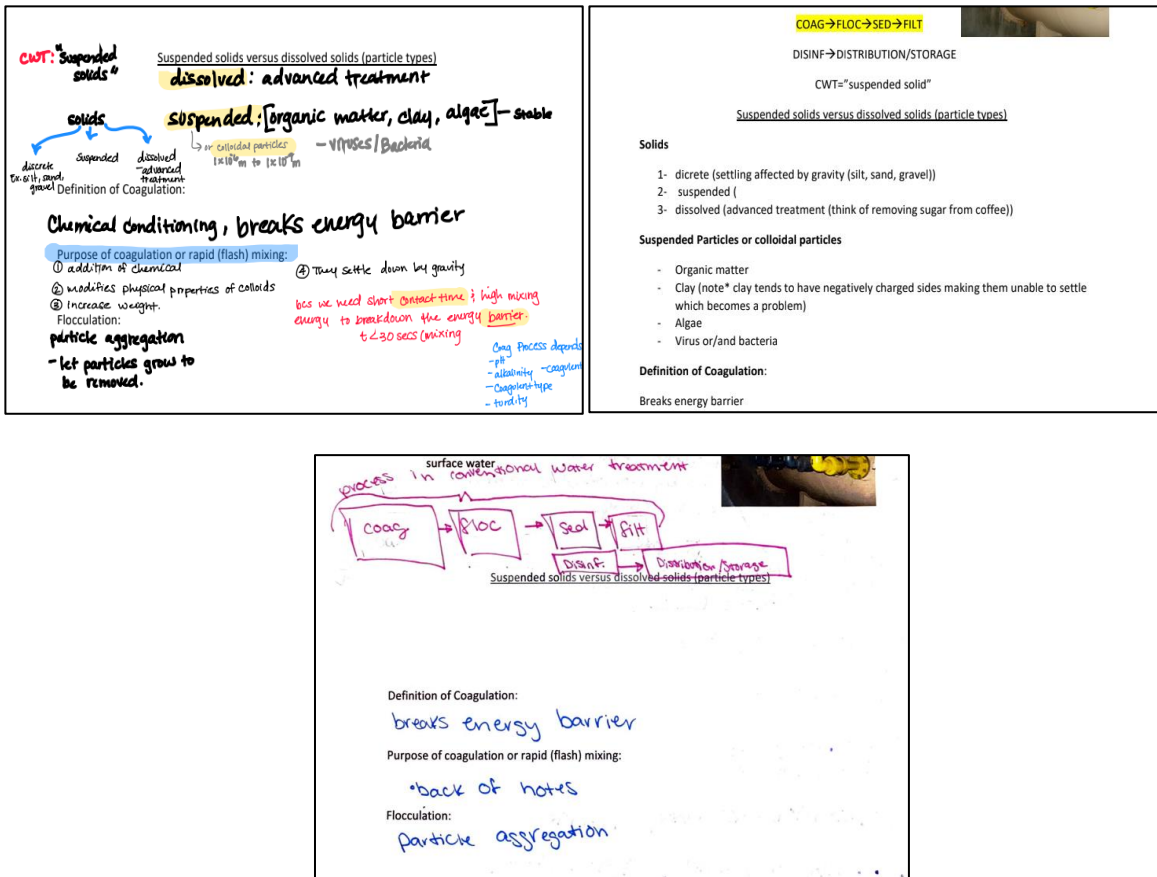 CWT: "Suspended
solids"
Suspended solids versus dissolved solids (particle types)
dissolved: advanced treatment
solids
suspended: [organic matter, clay, algae] - stable
or colloidal particles
1x10⁻⁶m to 1x10⁻⁹m
- viruses/Bacteria
discrete
Ex. silt, sand,
gravel
Suspended
dissolved
-advanced
treatment
Definition of Coagulation:
Chemical conditioning, breaks energy barrier
Purpose of coagulation or rapid (flash) mixing:
① addition of chemical
② modifies physical properties of colloids
③ Increase weight.
④ They settle down by gravity
bcs we need short contact time & high mixing
energy to breakdown the energy barrier.
t<30 secs (mixing
Flocculation:
particle aggregation
- let particles grow to
be removed.
Coag Process depends
- pH
- alkalinity - coagulent
- Coagulent type
- turdity
COAG→FLOC→SED→FILT
DISINF→DISTRIBUTION/STORAGE
CWT="suspended solid"
Suspended solids versus dissolved solids (particle types)
Solids
1- dicrete (settling affected by gravity (silt, sand, gravel))
2- suspended (
3- dissolved (advanced treatment (think of removing sugar from coffee))
Suspended Particles or colloidal particles
- Organic matter
- Clay (note* clay tends to have negatively charged sides making them unable to settle
which becomes a problem)
- Algae
- Virus or/and bacteria
Definition of Coagulation:
Breaks energy barrier
surface water
process in conventional water treatment
coag → floc → sed → filt
Disinf. → Distribution/Storage
Suspended solids versus dissolved solids (particle types)
Definition of Coagulation:
breaks energy barrier
Purpose of coagulation or rapid (flash) mixing:
•back of notes
Flocculation:
particle aggregation